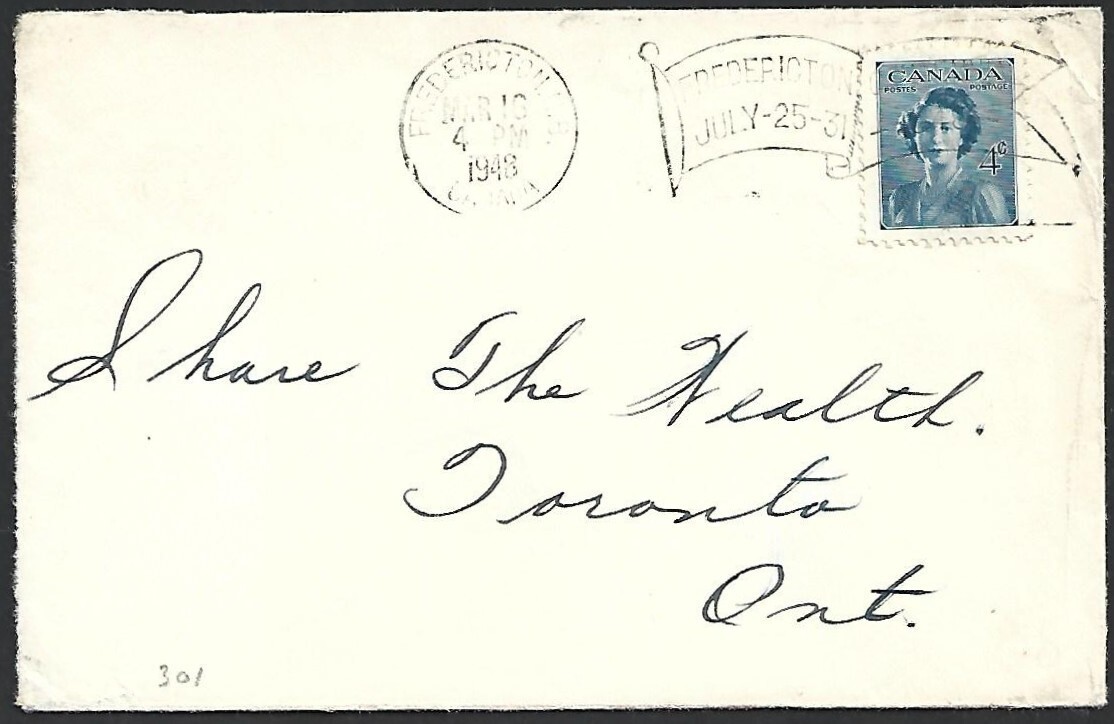 FREDERICTON, N.B.
MAR 16
4 PM
1948
CANADA
FREDERICTON
JULY-25-31
CANADA
POSTES POSTAGE
4¢
Share The Wealth.
Toronto
Ont.
301